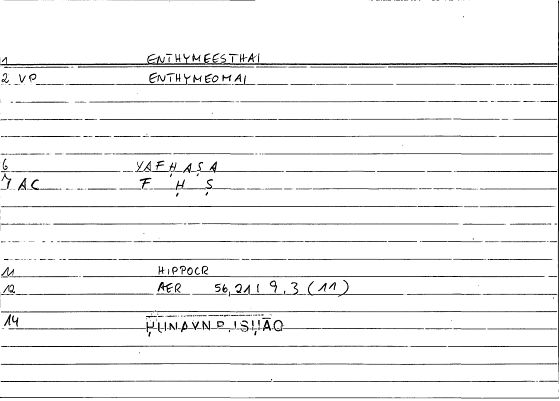 1 ENTHYMEESTHAI
2 VP ENTHYMEOMAI
6 YAFḤAṢA
7 AC F Ḥ Ṣ
11 HIPPOCR
12 AER 56,21 : 9,3 (11)
14